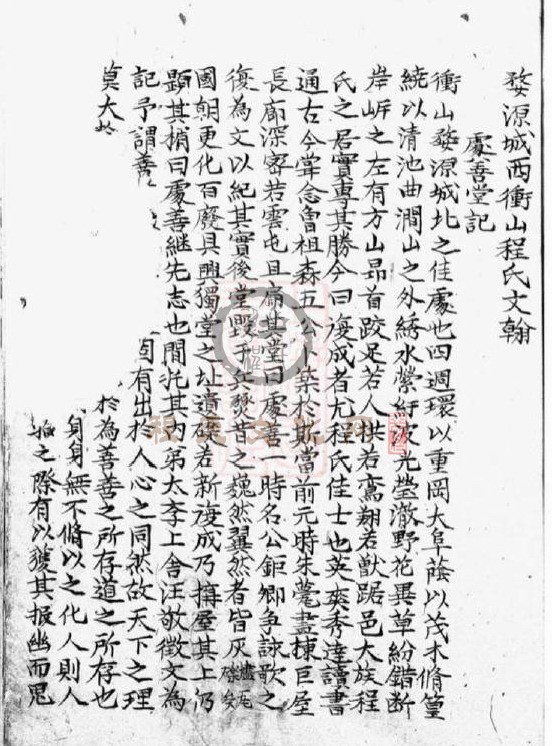 婺源城西衝山程氏文翰
處善堂記
衝山婺源城北之佳處也四週環以重岡大阜蔭以茂木脩篁
繞以清池曲澗山之外綉水縈紆波光瑩澈野花異草紛錯断
岸㟁之左有方山昂首跂足若人拱若鸞翔若獸踞邑大族程
氏之居實專其勝今曰復成者尤程氏佳士也英爽秀達讀書
通古今甞念魯祖森五公卜築於斯當前元時朱甍畫棟巨屋
長廊深宻若雲屯且扁其堂曰處善一時名公鉅卿争詠歌之
復為文以紀其實後堂燬于兵燹昔之巍然翼然者皆灰燼瓦礫矣
國朝更化百廢具興獨堂之址遺礎若新復成乃搆屋其上仍
顕其楣曰處善継先志也間托其内弟太李上舍汪敬徴文為
記予謂善 固有出於人心之同然故天下之理
莫大於 於為善善之所存道之所存也
身身無不脩以之化人則人
之際有以獲其报幽而鬼